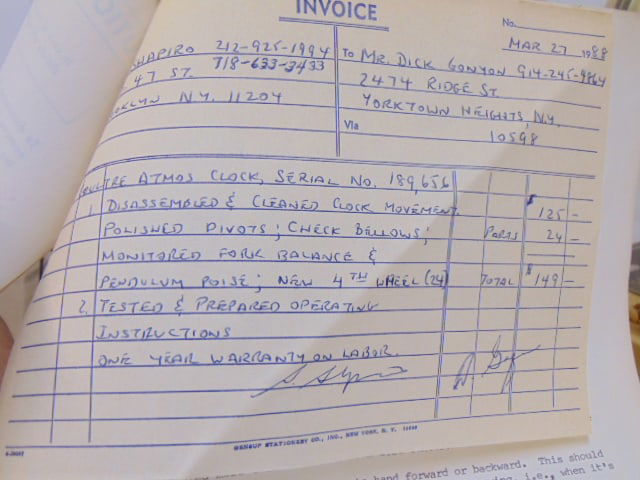 INVOICE
No.
MAR 27 1988
SHAPIRO 212-925-1994
718-633-3433
47 ST.
OKLYN N.Y. 11204
To MR. DICK GONYON 914-245-9864
2474 RIDGE ST
YORKTOWN HEIGHTS, N.Y.
Via 10598
ATMOS CLOCK, SERIAL NO. 189,656
1. DISASSEMBLED & CLEANED CLOCK MOVEMENT. $125 —
POLISHED PIVOTS; CHECK BELLOWS; PARTS 24 —
MONITORED FORK BALANCE &
PENDULUM POISE; NEW 4TH WHEEL (24) TOTAL $149 —
2. TESTED & PREPARED OPERATING
INSTRUCTIONS
ONE YEAR WARRANTY ON LABOR.
GENSUP STATIONERY CO., INC., NEW YORK, N. Y.
hand forward or backward. This should
i.e., when it's